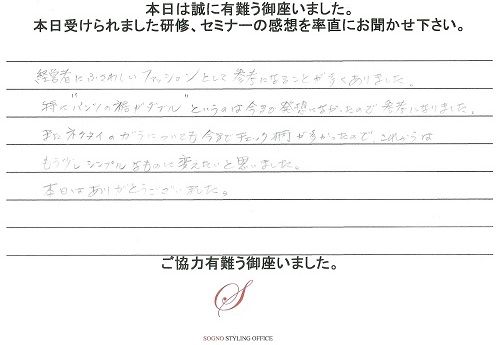 本日は誠に有難う御座いました。
本日受けられました研修、セミナーの感想を率直にお聞かせ下さい。
経営者にふさわしいファッションとして参考になることが多くありました。
特に"パンツの裾がダブル"というのは今まで発想になかったので参考になりました。
またネクタイのガラについても今までチェック柄が多かったので、これからは
もう少しシンプルなものに変えたいと思いました。
本日はありがとうございました。
ご協力有難う御座いました。
S
SOGNO STYLING OFFICE